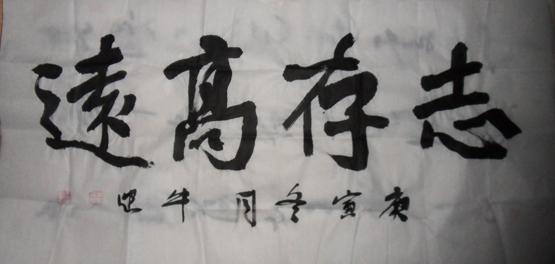 志存高遠
庚寅冬月牛